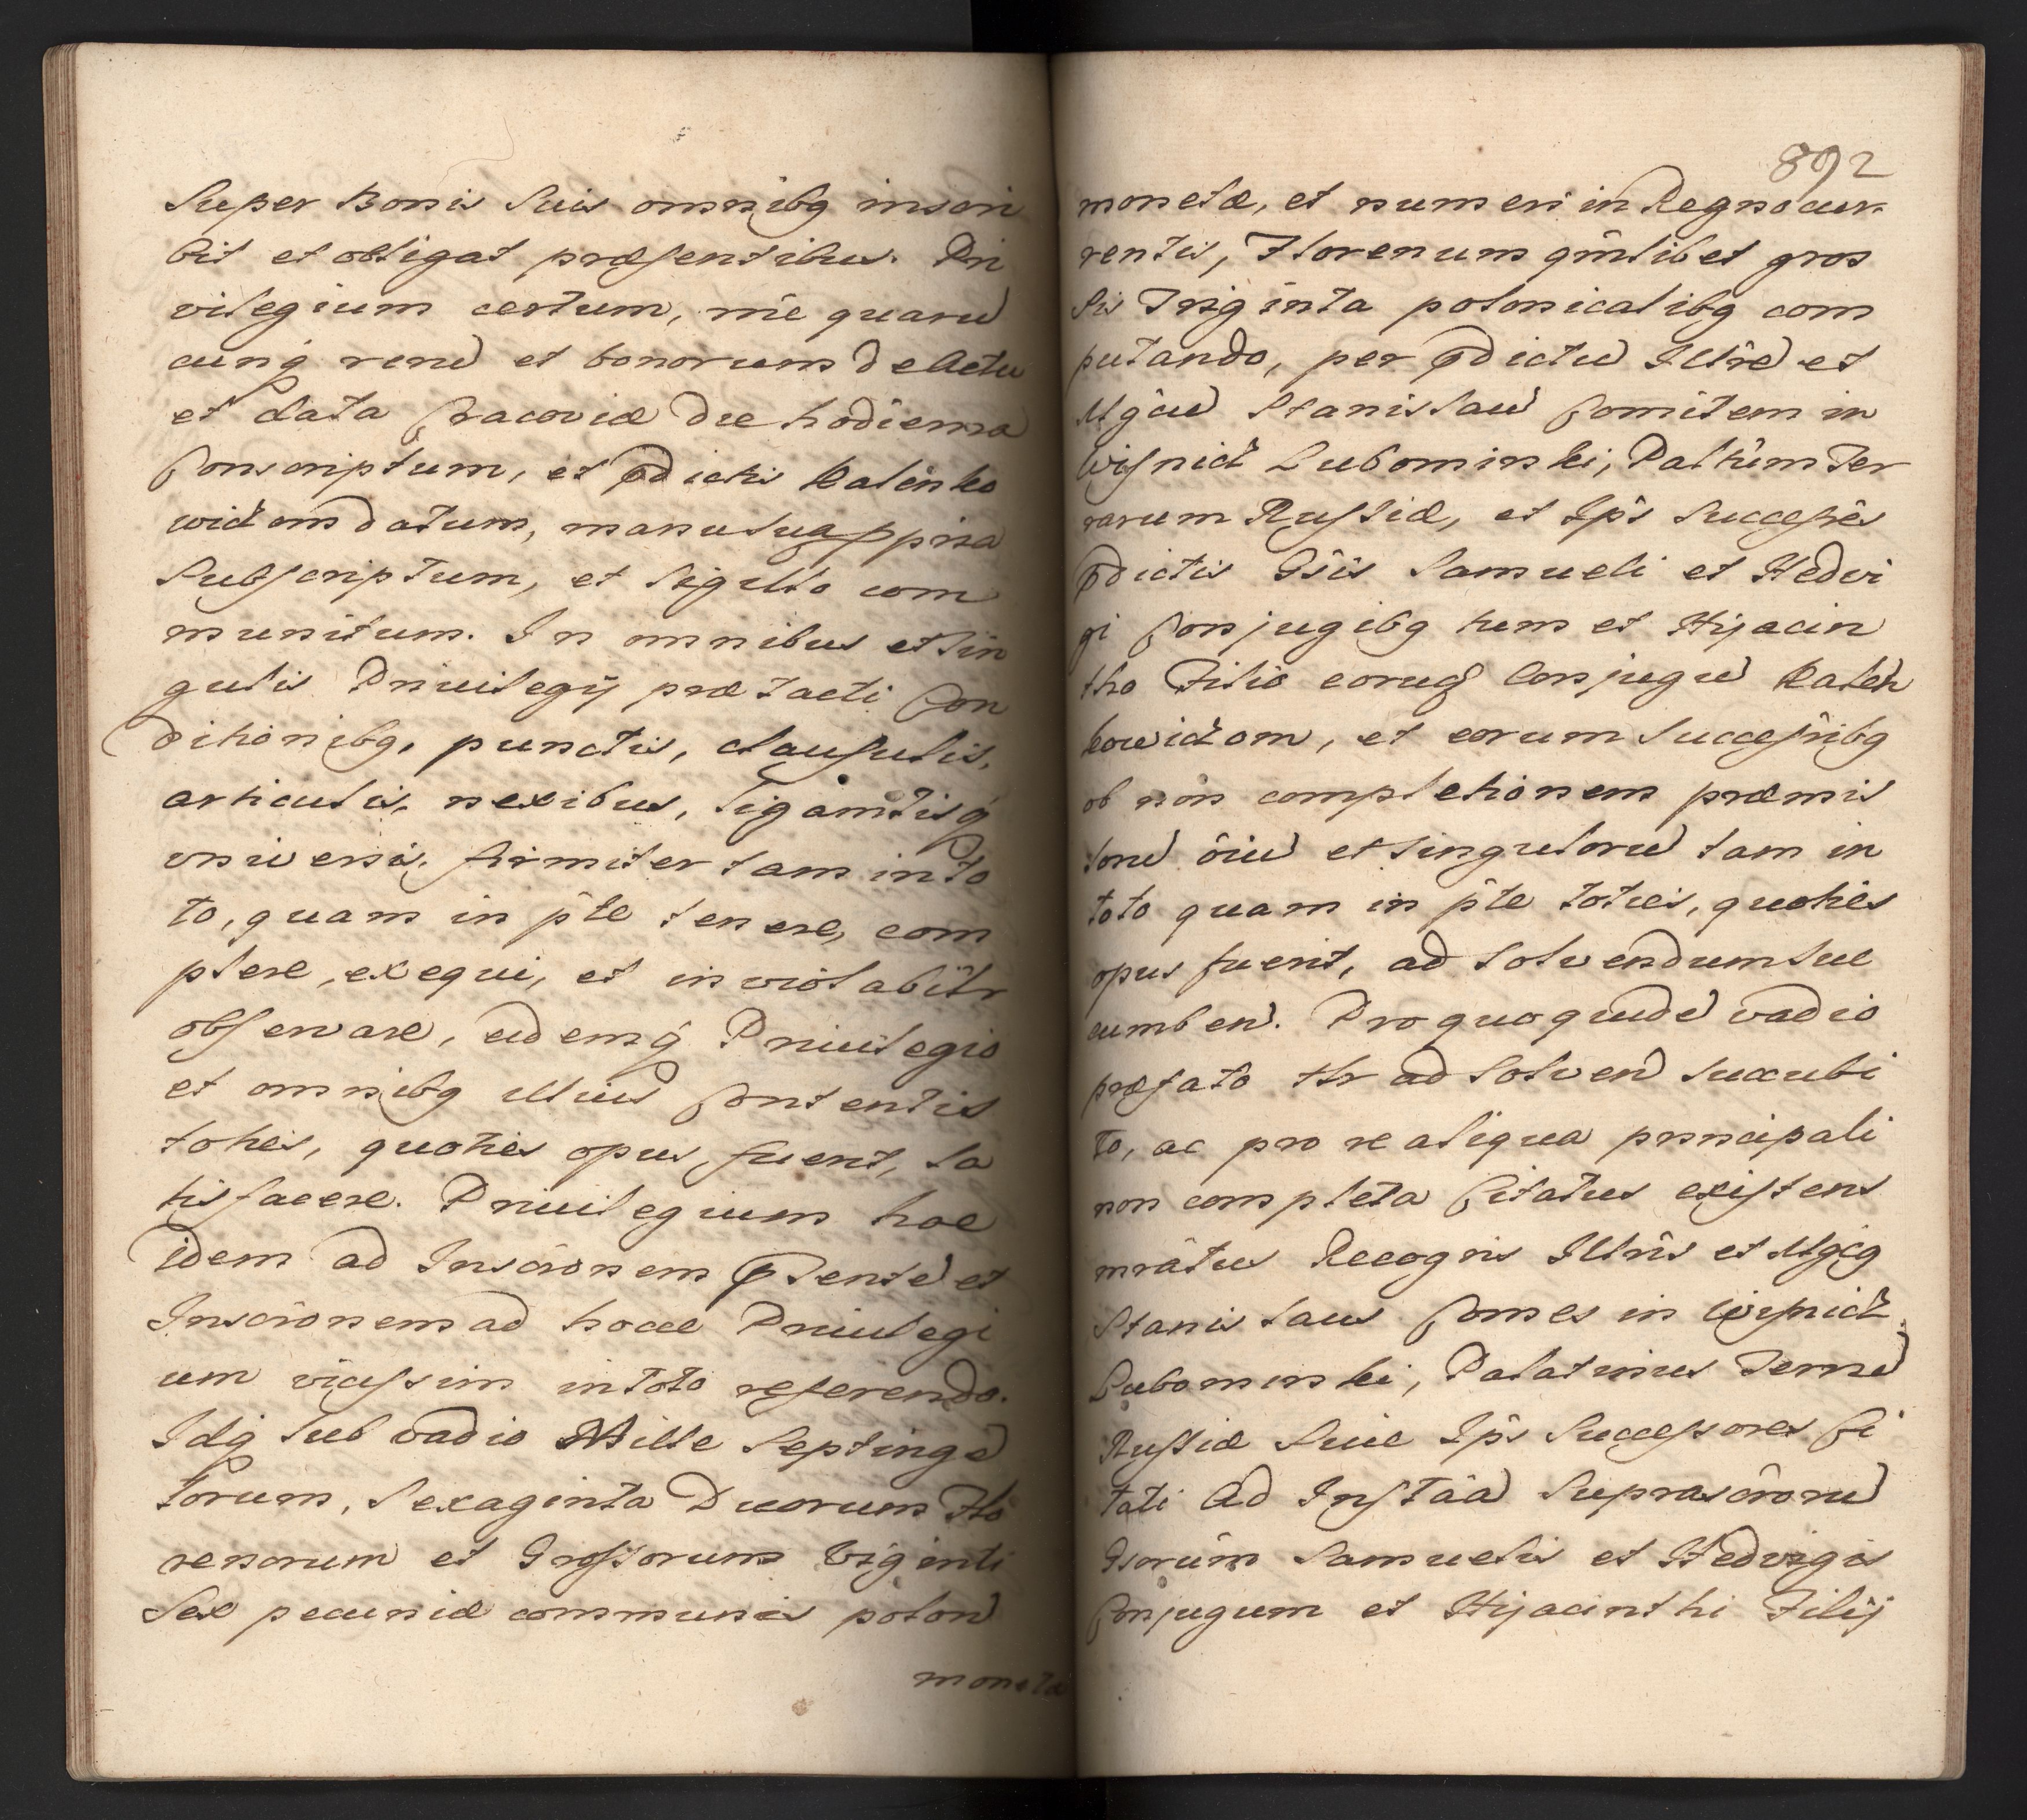 Super Bonis Suis omnibq inscri
bit et obligat præsentibus. Pri
vilegium certum, nîe quarū
cunq̄ rerū et bonorum de Actu
et data Cracoviæ die hodierna
Conscriptum, et p̄dictis Kalinko
wiczom datum, manu sua ppria
Subscriptum, et Sigillo com
munitum. In omnibus et Sin
gulis Privilegij prætacti Con
ditionibq, punctis, clausulis,
articulis, nexibus, ligamtisq̄
universis, firmiter tam in to
to, quam in pte tenere, com
plere, exequi, et inviolabiltr
observare, eidemq̄ Privilegio
et omnibq illius Contentis
toties, quoties opus fuerit, sa
tisfacere. Privilegium hoc
idem ad Inscrōnem p̄sentē et
Inscrōnem ad hocce Privilegi
um vicissim in toto referendo.
Idq̄ sub vadio Mille Septingē
torum, Sexaginta Duorum Flo
renorum et Grossorum Viginti
Sex pecuniæ communis polon̄
monetæ
892
monetæ, et numeri in Regno cur
rentis, Florenum qm̄libet gros
sis Triginta polonicalibq com
putando, per p̄dictū Illrē et
Mgcū Stanislaū Comitem in
Wisnicz Lubomirski, Paltiūm Ter
rarum Russiæ, et Ips Successēs
p̄dictis Gsis Samueli et Hedvi
gi Conjugibq tum et Hyacin
tho Filio eorūd Conjugū Kalen
kowiczom, et eorum Successribq
ob non completionem præmis
sorū oiū et singulorū tam in
toto quam in pte toties, quoties
opus fuerit, ad solvendum suc
cumben̄. Pro quoquidē vadio
præfato ttr ad solven̄ succubi
to, ac pro re aliqua principali
non completa Citatus existens
mrātus Recogn̄s Illris et Mgcq
Stanislaus Comes in Wisnicz
Lubomirski, Palatinus Terrū
Russiæ Sive Ips Successores Ci
tati Ad Instāā Suprascrōrū
Gsorum Samuelis et Hedvigis
Conjugum et Hyacinthi Filij